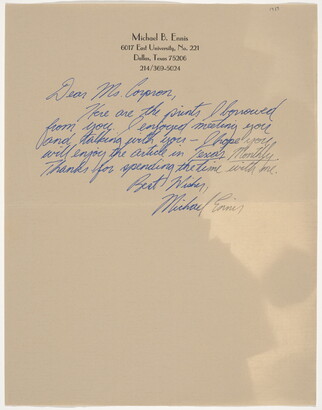 Michael B. Ennis
6017 East University, No. 221
Dallas, Texas 75206
214/369-5024
Dear Ms. Corpron,
Here are the prints I borrowed
from you. I enjoyed meeting you
and talking with you – I hope you
will enjoy the article in Texas Monthly.
Thanks for spending the time with me.
Best Wishes,
Michael Ennis